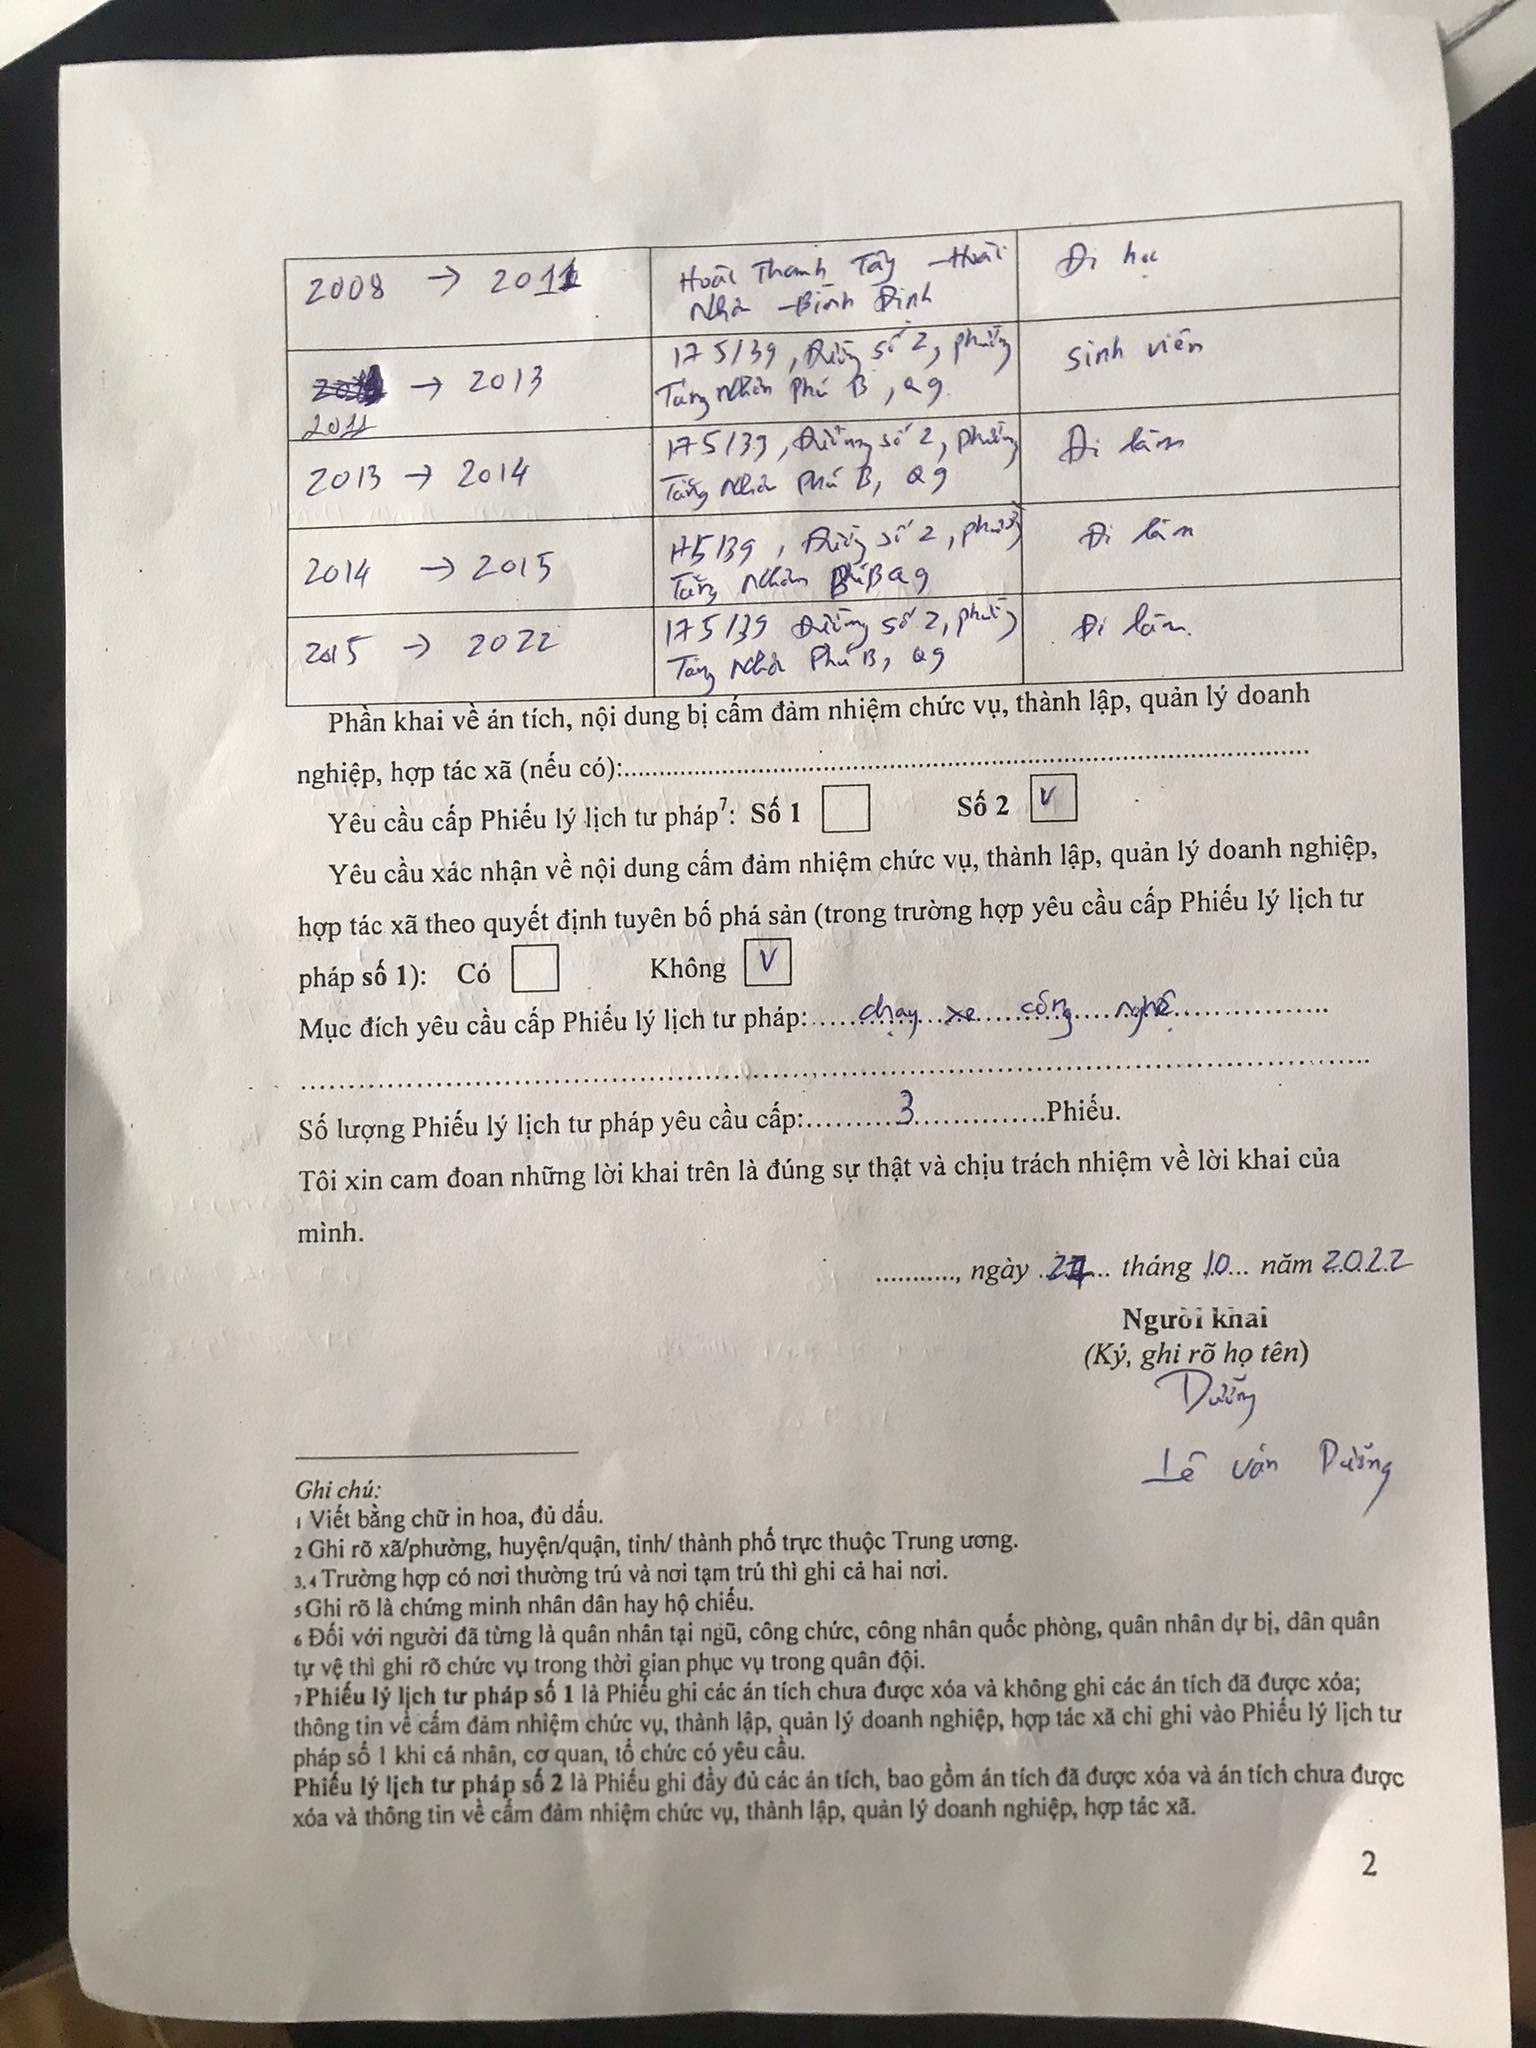 2008 → 2011
Hoài Thanh Tây - Hoài
Nhơn - Bình Định
Đi học
→ 2013
2011
175/39, Đường số 2, phường
Tăng Nhơn Phú B, Q9
Sinh viên
2013 → 2014
175/39, Đường số 2, phường
Tăng Nhơn Phú B, Q9
Đi làm
2014 → 2015
175/39, Đường số 2, phường
Tăng Nhơn Phú B Q9
Đi làm
2015 → 2022
175/39 Đường số 2, phường
Tăng Nhơn Phú B, Q9
Đi làm.
Phần khai về án tích, nội dung bị cấm đảm nhiệm chức vụ, thành lập, quản lý doanh
nghiệp, hợp tác xã (nếu có):................................................
Yêu cầu cấp Phiếu lý lịch tư pháp7: Số 1 Số 2 V
Yêu cầu xác nhận về nội dung cấm đảm nhiệm chức vụ, thành lập, quản lý doanh nghiệp,
hợp tác xã theo quyết định tuyên bố phá sản (trong trường hợp yêu cầu cấp Phiếu lý lịch tư
pháp số 1): Có Không V
Mục đích yêu cầu cấp Phiếu lý lịch tư pháp: chạy xe công nghệ
Số lượng Phiếu lý lịch tư pháp yêu cầu cấp: 3 Phiếu.
Tôi xin cam đoan những lời khai trên là đúng sự thật và chịu trách nhiệm về lời khai của
mình.
..........., ngày 27 tháng 10 năm 2022
Người khai
(Ký, ghi rõ họ tên)
Dưỡng
Lê Văn Dưỡng
Ghi chú:
1 Viết bằng chữ in hoa, đủ dấu.
2 Ghi rõ xã/phường, huyện/quận, tỉnh/ thành phố trực thuộc Trung ương.
3,4 Trường hợp có nơi thường trú và nơi tạm trú thì ghi cả hai nơi.
5 Ghi rõ là chứng minh nhân dân hay hộ chiếu.
6 Đối với người đã từng là quân nhân tại ngũ, công chức, công nhân quốc phòng, quân nhân dự bị, dân quân
tự vệ thì ghi rõ chức vụ trong thời gian phục vụ trong quân đội.
7 Phiếu lý lịch tư pháp số 1 là Phiếu ghi các án tích chưa được xóa và không ghi các án tích đã được xóa;
thông tin về cấm đảm nhiệm chức vụ, thành lập, quản lý doanh nghiệp, hợp tác xã chỉ ghi vào Phiếu lý lịch tư
pháp số 1 khi cá nhân, cơ quan, tổ chức có yêu cầu.
Phiếu lý lịch tư pháp số 2 là Phiếu ghi đầy đủ các án tích, bao gồm án tích đã được xóa và án tích chưa được
xóa và thông tin về cấm đảm nhiệm chức vụ, thành lập, quản lý doanh nghiệp, hợp tác xã.
2